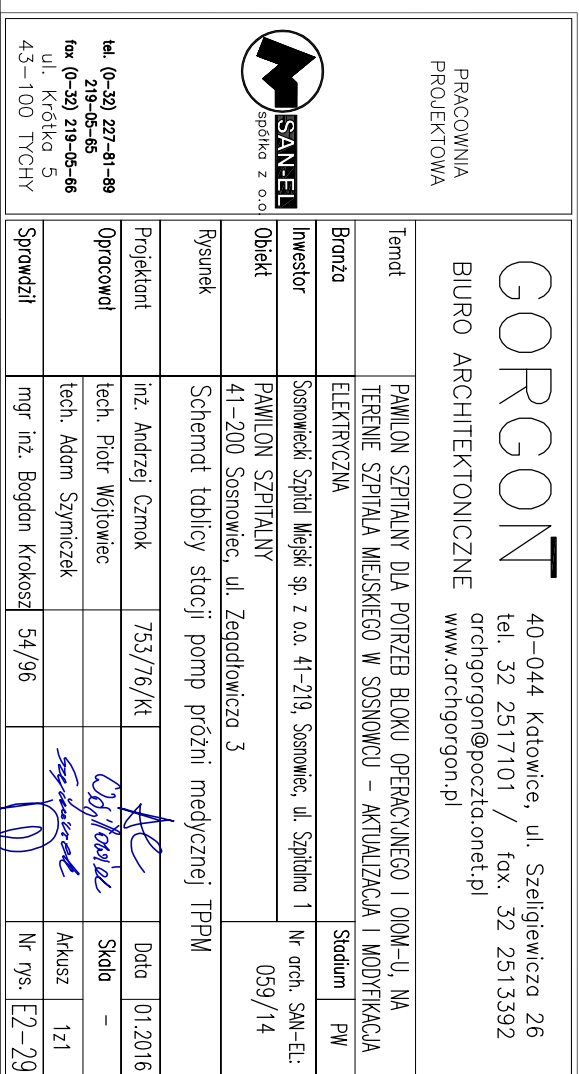 GORGOŃ
BIURO ARCHITEKTONICZNE
40-044 Katowice, ul. Szeligiewicza 26
tel. 32 2517101 / fax. 32 2513392
archgorgon@poczta.onet.pl
www.archgorgon.pl
PRACOWNIA
PROJEKTOWA
SAN-EL
spółka z o.o.
tel. (0-32) 227-81-89
219-05-65
fax (0-32) 219-05-66
ul. Krótka 5
43-100 TYCHY
Temat
PAWILON SZPITALNY DLA POTRZEB BLOKU OPERACYJNEGO I OIOM-U, NA
TERENIE SZPITALA MIEJSKIEGO W SOSNOWCU - AKTUALIZACJA I MODYFIKACJA
Branża ELEKTRYCZNA Stadium PW
Inwestor Sosnowiecki Szpital Miejski sp. z o.o. 41-219, Sosnowiec, ul. Szpitalna 1
Nr arch. SAN-EL:
059/14
Obiekt PAWILON SZPITALNY
41-200 Sosnowiec, ul. Zegadłowicza 3
Rysunek Schemat tablicy stacji pomp próżni medycznej TPPM
Projektant inż. Andrzej Czmok 753/76/Kt Data 01.2016
Opracował tech. Piotr Wójtowiec Wójtowiec Skala -
tech. Adam Szymiczek Szymiczek Arkusz 1z1
Sprawdził mgr inż. Bogdan Krokosz 54/96 Nr rys. E2-29